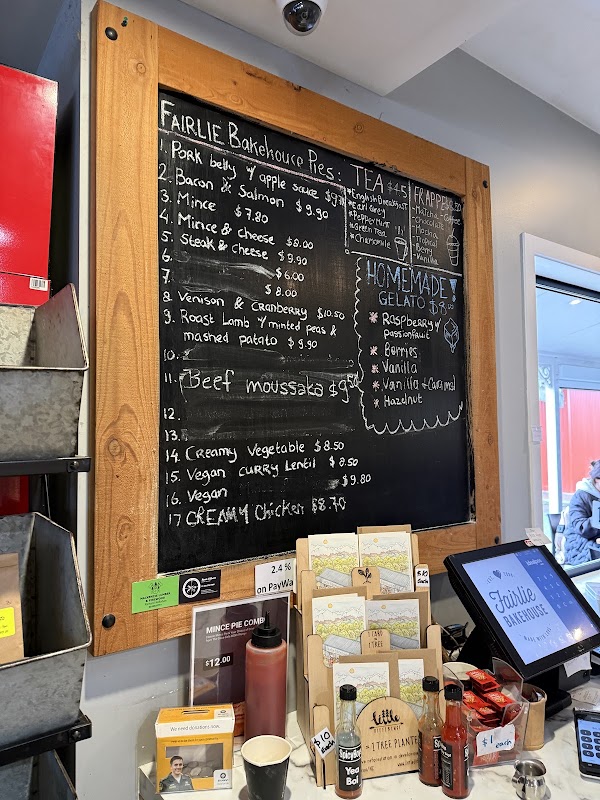 FAIRLIE Bakehouse Pies:
1. Pork belly w/ apple sauce
2. Bacon & Salmon $9.90
3. Mince $7.80
4. Mince & cheese $8.00
5. Steak & cheese $9.90
6. $6.00
7. $8.00
8 Venison & CRANBERRY $10.50
9. Roast Lamb w/ minted peas &
mashed patato $9.90
10.
11. Beef moussaka
12.
13.
14. Creamy Vegetable $8.50
15. Vegan CURRY Lentil $8.50
16. Vegan $9.80
17 CREAMY Chicken $8.70
TEA
*English Breakfast
*Earl Grey
*PePPeRMiNt
*Green tea
*Chamomile
FRAPPE
-Matcha -Coffee
-Chocolate
-Mocha
-Tropical
-Berry
-Vanilla
HOMEMADE!
GELATO
Raspberry w/
passionfruit
Berries
Vanilla
Vanilla + Caramel
Hazelnut
2.4 %
on PayWa
MINCE PIE COMB
$12.00
We need donations now.
$10
each
1 CARD
1 TREE
little
1 TREE PLANTED
$10
each
Spicy
Yea
Boi
$1 each
Fairlie
BAKEHOUSE